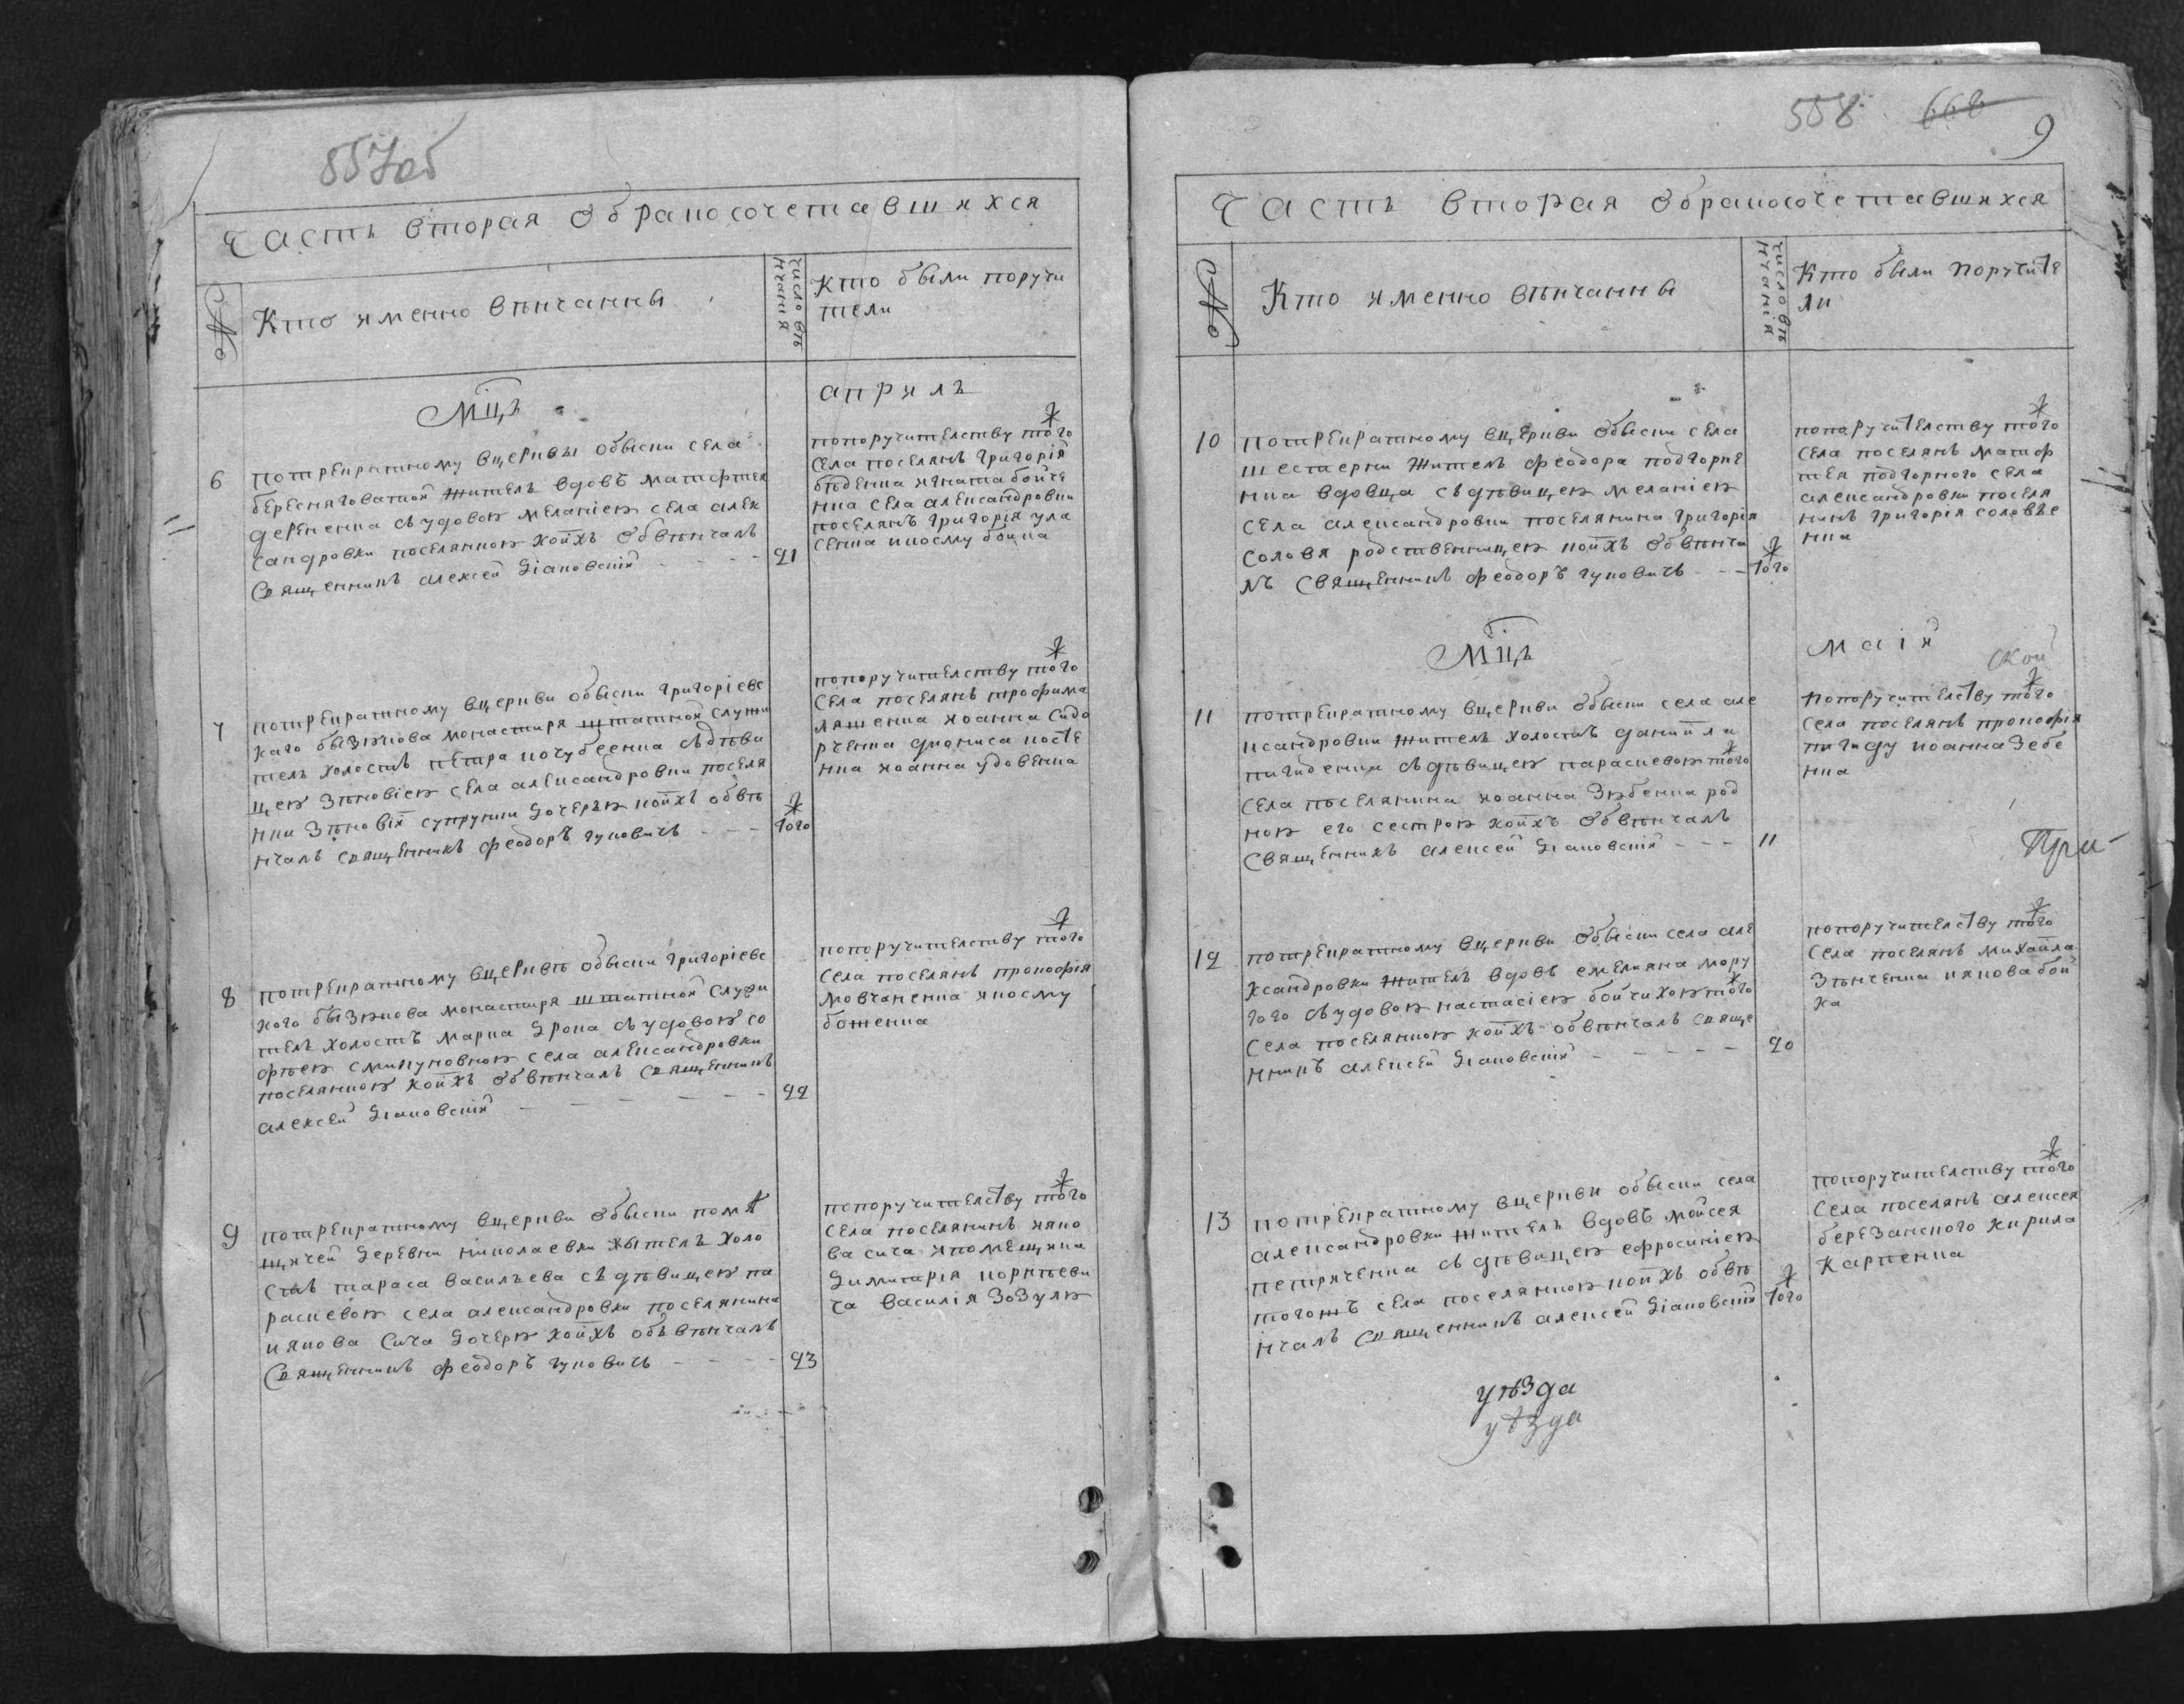 557об
Часть вторая обракосочетавшихся
№
Кто именно венчанны
число вѣ
нчания
Кто были поручи
тели
Мцъ
априль
6
потрекратному вцеркви обыски села
бересняговатой жителъ вдовъ матфтея
деренченка съ удовою меланiею села алек
сандровки поселянкою коихъ обвѣнчалъ
Священникъ алексей Дiаковскiй - - -
21
попоручителству того ж
села поселянъ григорiя
игната бойче
нка села александровки
поселянъ григорiя гула
сенка
7
потрекратному вцеркви обыски григорiевс
каго бызюкова монастиря штатной служи
телъ холостъ петра кочубеенка съ дѣви
цею зѣновiею села александровки поселя
нки зѣновiи супрунки дочерью коихъ обвѣ
нчалъ священникъ феодоръ гуковичь - - -
того ж
попоручителству того ж
села поселянъ трофима
ляшенка иоанна сидо
рченка диониса косте
нка иоанна удовенка
8
потрекратному вцерквѣ обыски григорiевс
кого бызюкова монастиря штатной служи
телъ холостъ марка Дрона съ удовою со
фѣею смикуновною села александровки
поселянкою коихъ обвѣнчалъ священникъ
алексей Дiаковскiй - - - - - -
22
попоручителству того ж
села поселянъ прокофiя
мовчаненка якосму
боженка
9
потрекратному вцеркви обыски помѣ
щичей деревни николаевки жытелъ холо
стъ тараса василъева съ дѣвицею па
раскевою села александровки поселянина
иякова сича дочерю коихъ объвѣнчалъ
Священникъ феодоръ гуковичь - - - -
23
попоручителству того ж
села поселянинъ ияко
ва сича ипомещика
Димитрiя корнѣеви
ча василiя зозулю
558 668
9
Часть вторая обракосочетавшихся
№
Кто именно венчанны
число вѣ
нчанiя
Кто были поручите
ли
10
потрекратному вцеркви обыски села
шестерни жителъ феодора подгорне
нка вдовца съ дѣвицею меланiею
села александровки поселянина григорiя
соловя родственницею коихъ обвѣнча
лъ священникъ феодоръ гуковичь - - -
того ж
попоручителству того ж
села поселянъ матф
тея подгорного села
александровки поселя
нинъ григорiя соловье
нка
Мцъ
маiя
11
потрекратному вцеркви обыски села але
ксандровки жителъ холостъ данiила
пагиденка съ дѣвицею параскевою того ж
села поселянина иоанна зюбенка род
ною его сестрою коихъ обвѣнчалъ
Священникъ алексей Дiаковскiй - - -
11
ской
попоручителству того ж
села поселянъ прокофiя
пагиду иоанна зебе
нка
При-
12
потрекратному вцеркви обыски села але
ксандровки жителъ вдовъ емелияна мору
гого съ удовою настасiею бойчихою того ж
села поселянкою коихъ обвѣнчалъ свяще
нникъ алексей Дiаковскiй - - - - -
20
попоручителству того ж
села поселянъ михайла
зѣнченка иякова бой
ка
13
потрекратному вцеркви обыски села
александровки жителъ вдовъ мойсея
петриченка съ дѣвицею ефросинiею
тогожъ села поселянкою коихъ обвѣ
нчалъ священникъ алексей Дiаковскiй
того ж
попоручителству того ж
села поселянъ алексея
березанского кирила
карпенка
уѣзда
уѣзда